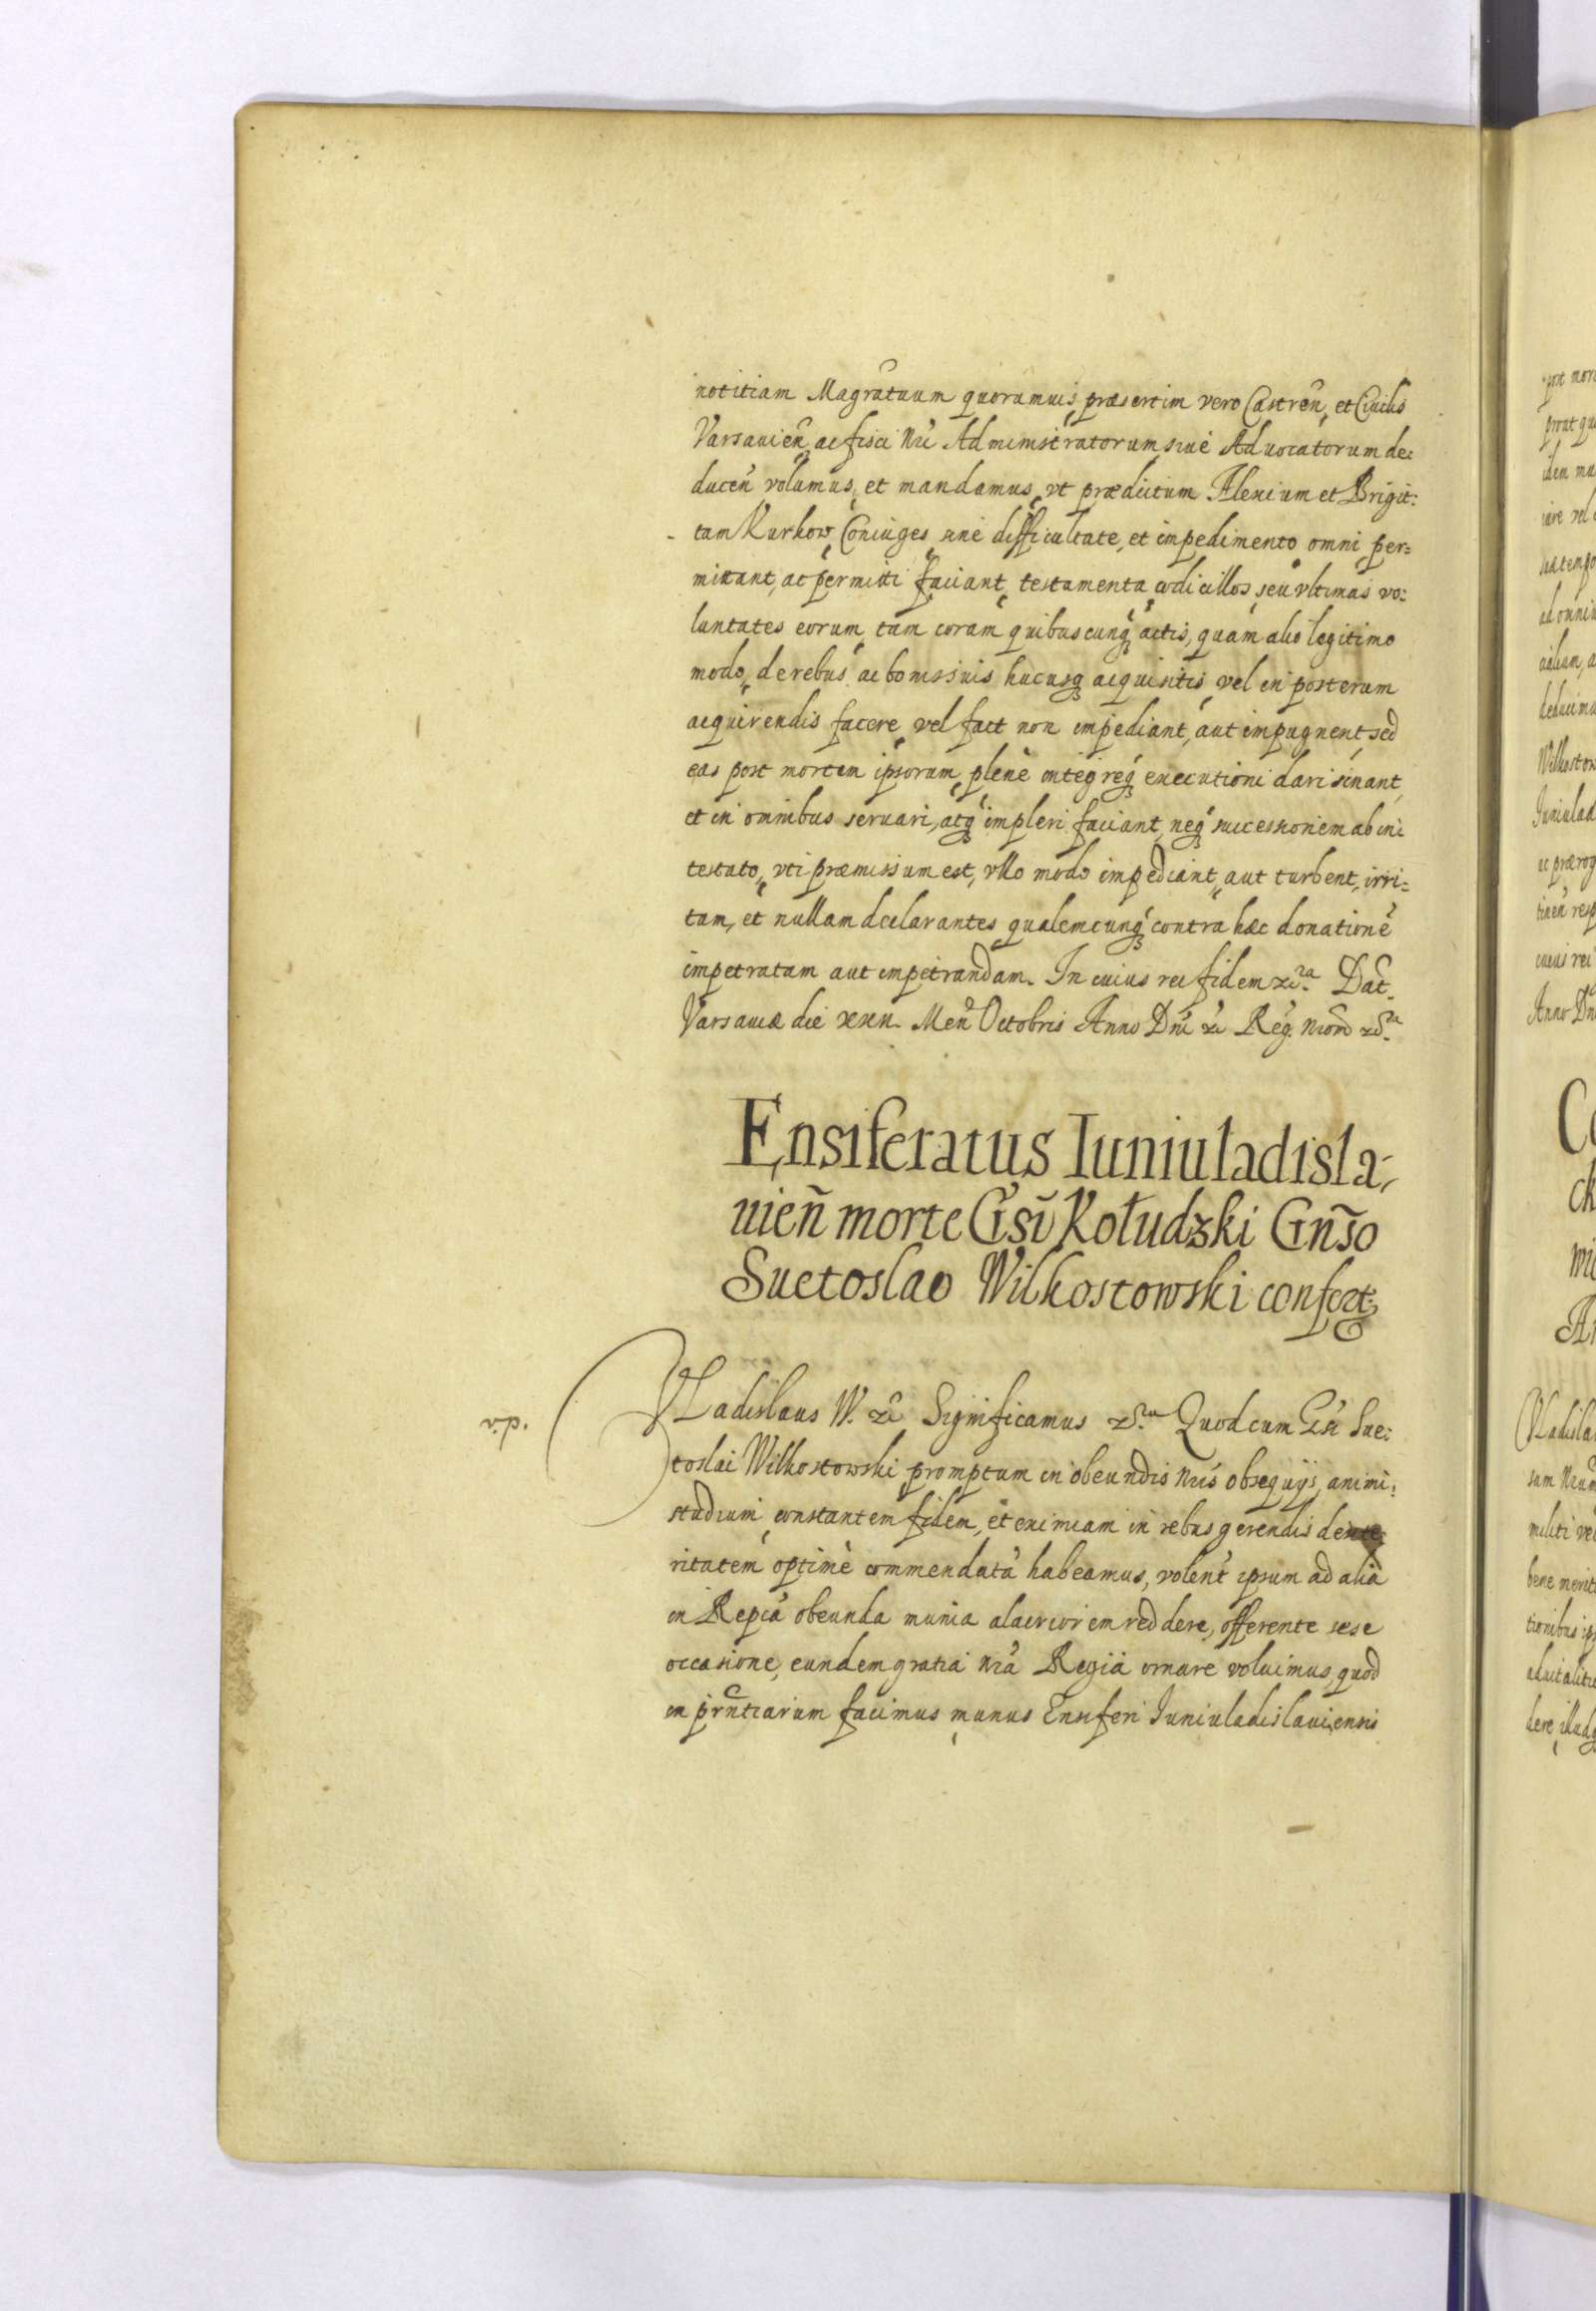 notitiam Magrãtuum quorumuis præsertim vero Castreñ, et Ciuilis
Varsauieñ ac fisci Nri Administratorum siue Aduocatorum de:
duceñ volumus, et mandamus, vt prædictum Alexium et Brigit:
tam Kurkow Coniuges sine difficultate, et impedimento omni per:
mittant, ac permitti faciant, testamenta, codicillos, seu vltimas vo:
luntates eorum, tam coram quibuscunq actis, quam alio legitimo
modo, de rebus ac bonis suis hucusq acquisitis, vel in posterum
acquirendis facere, vel fact non impediant, aut impugnent, sed
eas post mortem ipsorum plenè integreq executioni dari sinant,
et in omnibus seruari, atq impleri faciant, neq successionem ab in:
testato, vti præmissum est, vllo modo impediant, aut turbent, irri:
tam, et nullam declarantes qualemcunq contra hæc donationẽ
impetratam aut impetrandam. In cuius rei fidem &ra. Dat.
Varsauiæ die xxx. Meñ Octobris Anno Dñi &c Reg. Nrorũ &ra
Ensiferatus Iuniuladisla:
uieñ morte Gsi Kołudzki Gnso
Suetoslao Wilkostowski confert.
Vladislaus IV. &c Significamus &ra Quod cum Gsi Sue:
v.p.
toslai Wilkostowski promptum in obeundis Nris obsequijs, animi:
studium, constantem fidem, et eximiam in rebus gerendis dexte:
ritatem optimè commendatã habeamus, volent ipsum ad alia
in Repca obeunda munia alacriorem reddere, offerente sese
occasione, eundem gratia Nra Regia ornare voluimus, quod
in prñtiarum facimus munus Ensiferi Iuniuladislauiensis